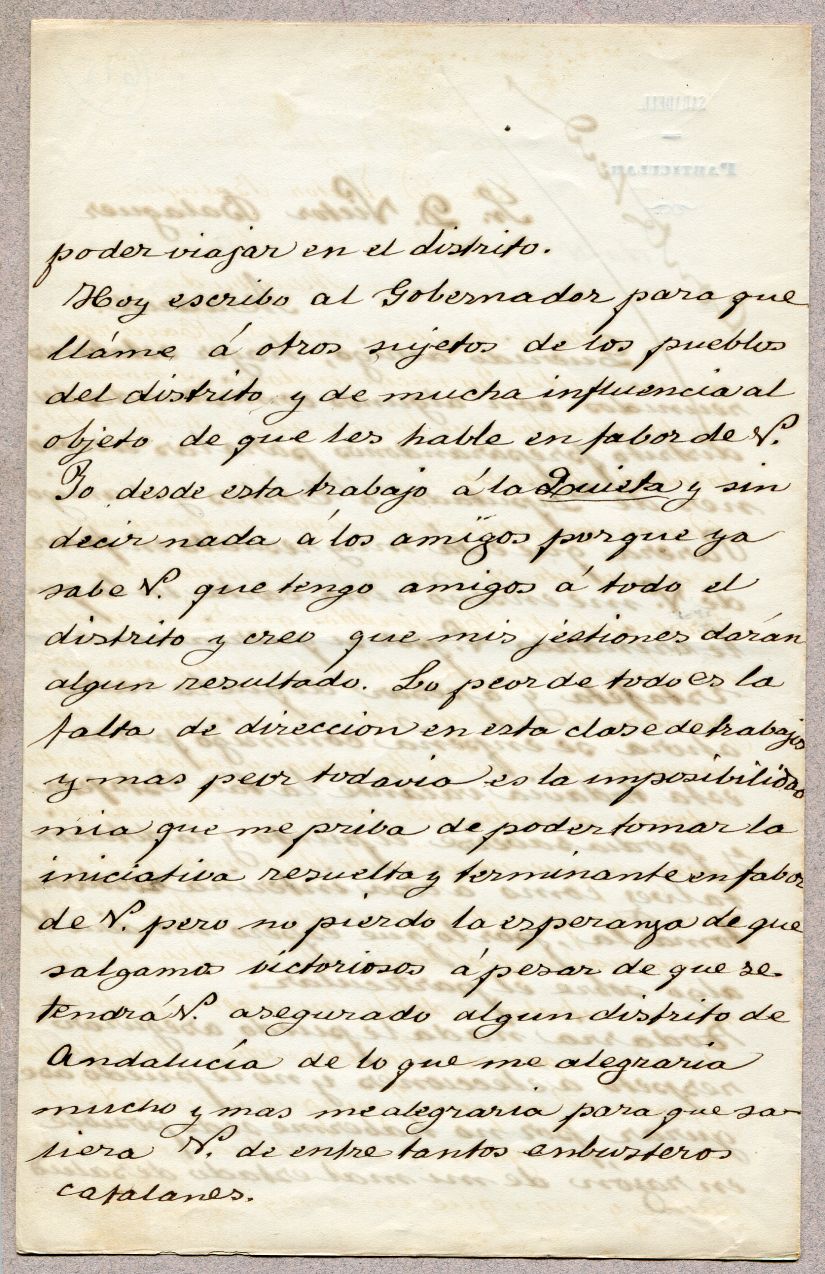 poder viajar en el distrito.
Hoy escribo al Gobernador para que
lláme á otros sujetos de los pueblos
del distrito y de mucha influencia al
objeto de que les hable en fabor de V.
Yo desde esta trabajo á la Quieta y sin
decir nada á los amigos porque ya
sabe V. que tengo amigos á todo el
distrito y creo que mis jestiones darán
algun resultado. Lo peor de todo es la
falta de direccion en esta clase de trabajos
y mas peor todavia es la imposibilidad
mia que me priba de poder tomar la
iniciativa resuelta y terminante en fabor
de V. pero no pierdo la esperanza de que
salgamos victoriosos á pesar de que se
tendrá V. asegurado algun distrito de
Andalucía de lo que me alegraria
mucho y mas me alegraria para que sa-
liera V. de entre tantos enbusteros
catalanes.
Sr. D. Victor Balaguer
SABADELL
PARTICULAR